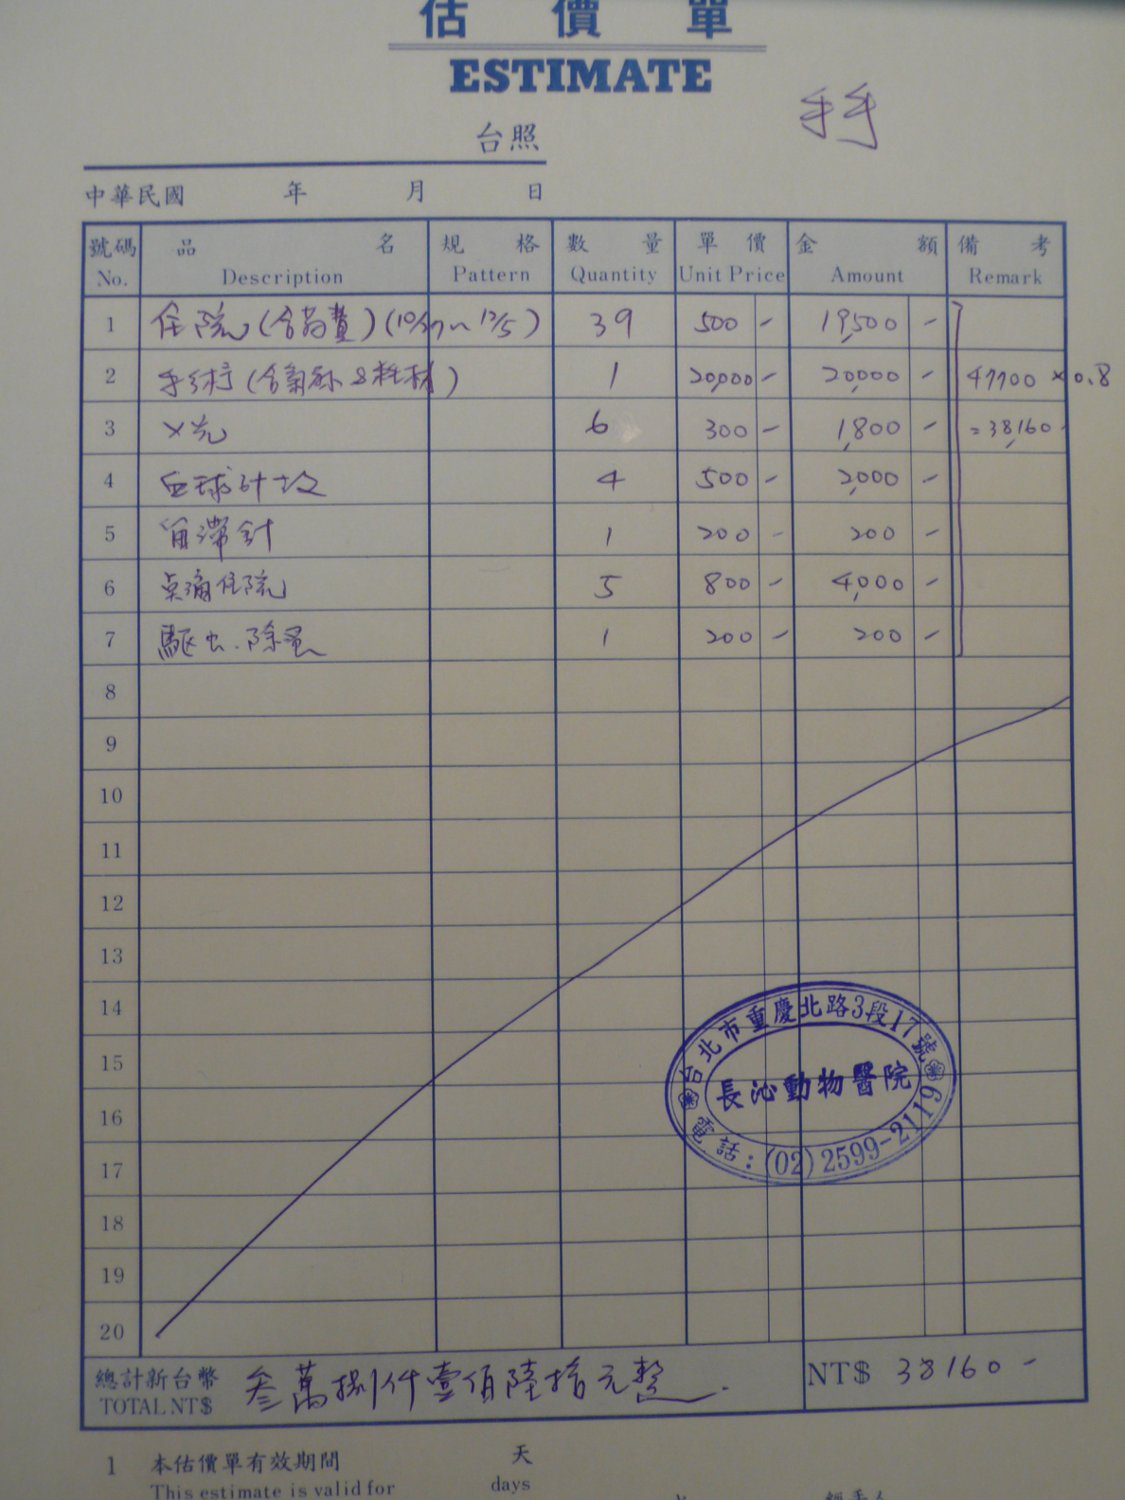 估價單
ESTIMATE
手手
台照
中華民國 年 月 日
號碼 品名 規格 數量 單價 金額 備考
No. Description Pattern Quantity Unit Price Amount Remark
1 住院(含葯費)(10/27~12/5) 39 500 - 19,500 -
2 手術(含氣麻&耗材) 1 20,000 - 20,000 - 47700 × 0.8
3 X光 6 300 - 1,800 - =38,160-
4 血球計數 4 500 - 2,000 -
5 留滯針 1 200 - 200 -
6 點滴住院 5 800 - 4,000 -
7 驅虫.除蚤 1 200 - 200 -
8
9
10
11
12
13
14
15
16
17
18
19
20
台北市重慶北路3段17號
長沁動物醫院
電話:(02)2599-2119
總計新台幣 叁萬捌仟壹佰陸拾元整. NT$ 38160-
TOTAL NT$
1 本估價單有效期間 天
This estimate is valid for days